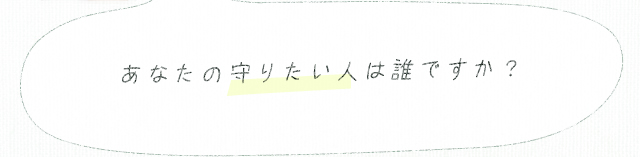 あなたの守りたい人は誰ですか？